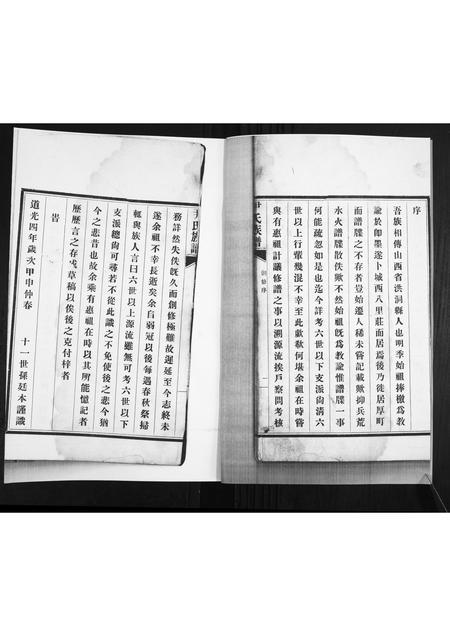 序
吾族相傳山西省洪洞縣人也明季始祖捧檄爲教
諭於卽墨遂卜城西八里莊而居焉後乃徙居厚町
而譜牒之不存者豈始遷人稀未嘗記載歟抑兵荒
水火譜牒散佚歟不然始祖旣爲教諭惟譜牒一事
何能疏忽如是也迄今詳考六世以下支派尙清六
世以上行輩幾混不幸至此歔欷何堪余祖在時嘗
與有惠祖計議修譜之事以溯源流挨戶察問考核
氏族譜
創修序
尹氏族譜
務詳然失佚旣久而創修極難故遲延至今志終未
遂余祖不幸長逝矣余自弱冠以後每遇春秋祭掃
輒與族人言曰六世以上源流雖無可考六世以下
支派總尙可尋若不從此識之不免使後之悲今猶
今之悲昔也故余乘有惠祖在時以其所能憶記者
歷歷言之存戋草稿以俟後之克付梓者
旹
道光四年歲次甲申仲春　十一世孫廷本謹識